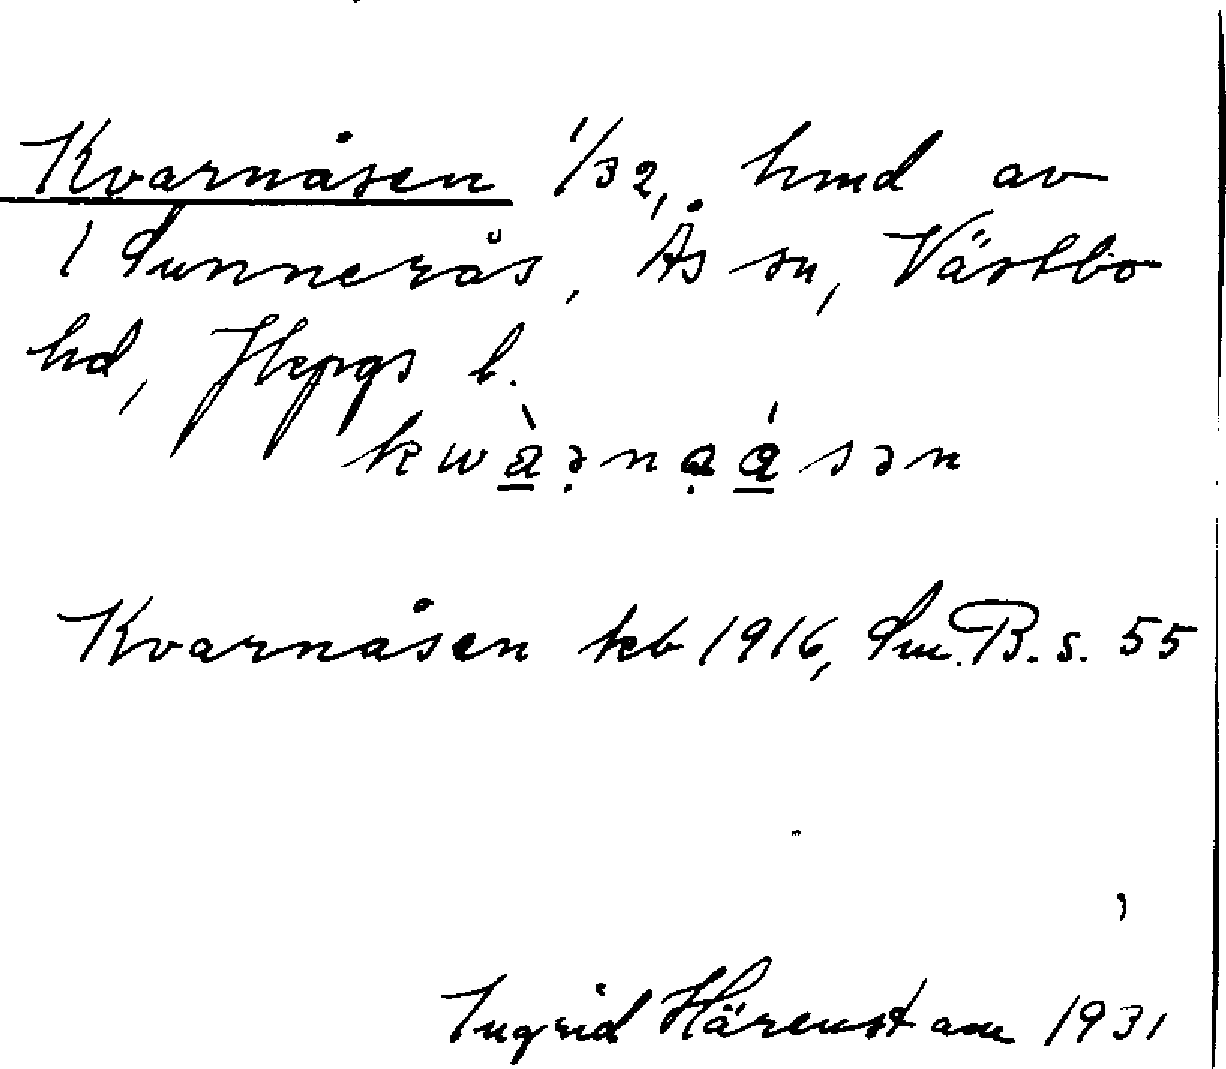 Kvarnåsen 1/32, hmd av
1 Sunnerås, Ås sn, Västbo
hd, Jkpgs l.
kwàənaásən
Kvarnåsen kb 1916, Sm.B. s. 55
Ingrid Härenstam 1931